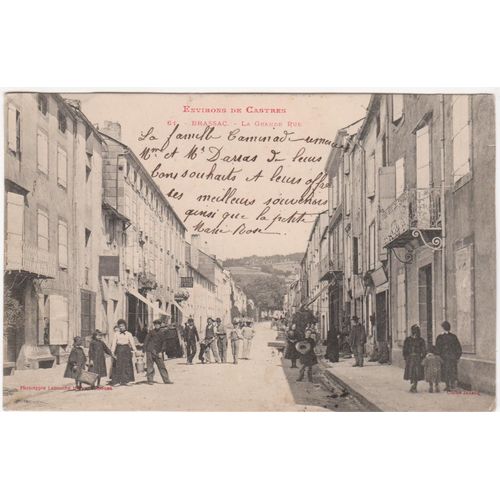 ENVIRONS DE CASTRES
61. - BRASSAC. - LA GRANDE RUE
La famille Caminade
Mme et M. Darras de leurs
bons souhaits et leurs offre
ses meilleurs souvenirs
ainsi que la petite
Marie Rose.
Phototypie Labouche